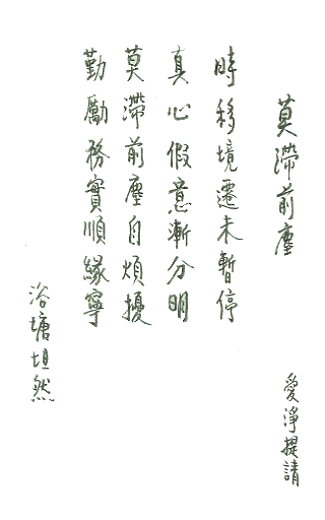 莫滯前塵
愛淨提請
時移境遷未暫停
真心假意漸分明
莫滯前塵自煩擾
勤勵務實順緣寧
浴塘坦然